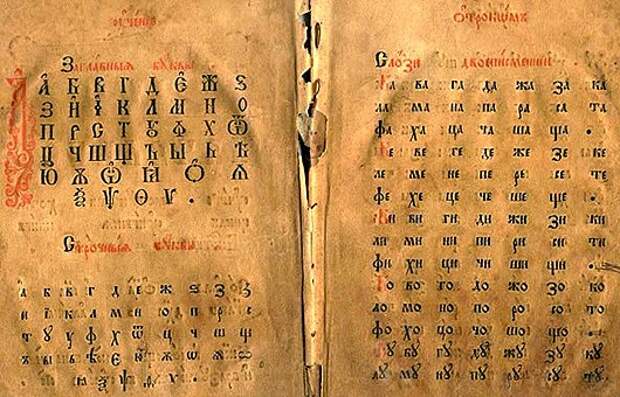 Заглавныѧ бꙋквы
А Б В Г Д Є Ж Ѕ
З И І К Л А М Н О
П Р С Т Ꙋ Ф Х Ѿ
Ц Ч Ш Щ Ъ Ы Ь Ѣ
Ѯ Ѱ Ѳ Ѵ .
Строчныѧ бꙋквы
а б в г д е ж ѕ з
т ꙋ у ф х ѿ ц ч ш щ
ѯ ѱ ѳ ѵ .
Слози двописменнїи
ба ва га да жа за ка
ла ма на па ра са та
фа ха ца ча ша ща .
бе ве ге де же зе ке
ле ме не пе ре се те
фе хе це че ше ще .
би ви ги ди жи зи ки
ли ми ни пи ри си ти
фи хи ци чи ши щи .
бо во го до жо зо ко
ло мо но по ро со то
фо хо цо чо шо що .
бꙋ вꙋ гꙋ дꙋ жꙋ зꙋ кꙋ
лꙋ мꙋ нꙋ пꙋ рꙋ сꙋ тꙋ